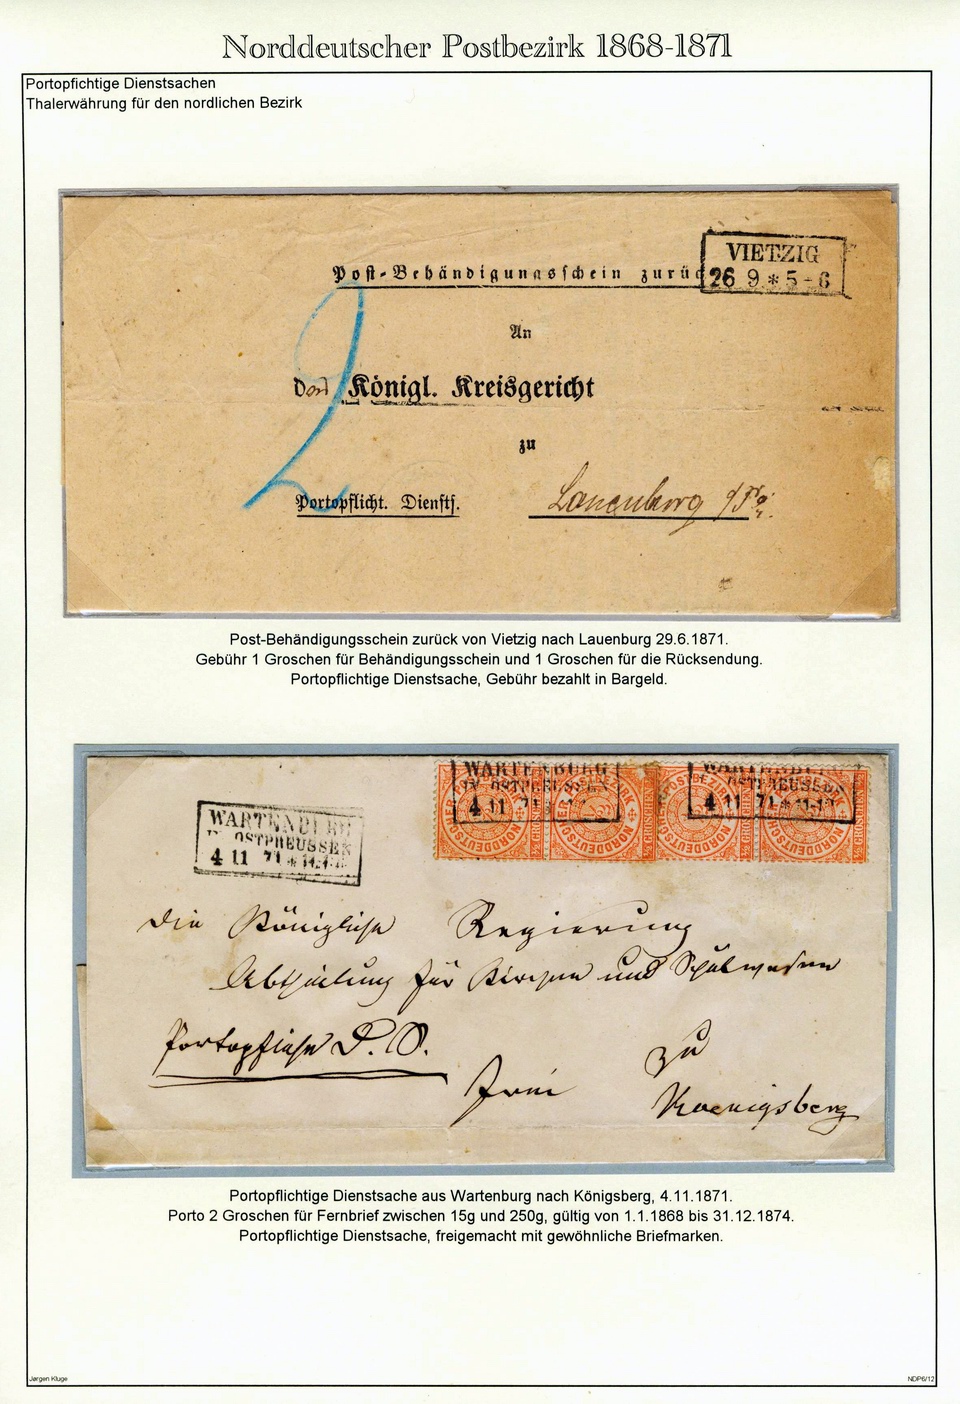 Norddeutscher Postbezirk 1868-1871
Portopfichtige Dienstsachen
Thalerwährung für den nordlichen Bezirk
VIETZIG
26 9 * 5 - 6
Post-Behändigungsschein zurüc
An
Das Königl. Kreisgericht
zu
Portopflicht. Diensts.
Lauenburg i/Po
2
Post-Behändigungsschein zurück von Vietzig nach Lauenburg 29.6.1871.
Gebühr 1 Groschen für Behändigungsschein und 1 Groschen für die Rücksendung.
Portopflichtige Dienstsache, Gebühr bezahlt in Bargeld.
WARTENBURG
IN OSTPREUSSEN
4 11 71 *
WARTENBURG
IN OSTPREUSSEN
4 11 71
WARTENBURG
OSTPREUSSEN
4 11 71 * 11-12
NORDDEUTSCHER POSTBEZIRK
NORDDEUTSCHER POSTBEZIRK
NORDDEUTSCHER POSTBEZIRK
NORDDEUTSCHER POSTBEZIRK
Die Königliche Regierung
Abtheilung für Kirchen und Schulwesen
Portopflicht D. S.
zu
frei
Koenigsberg
Portopflichtige Dienstsache aus Wartenburg nach Königsberg, 4.11.1871.
Porto 2 Groschen für Fernbrief zwischen 15g und 250g, gültig von 1.1.1868 bis 31.12.1874.
Portopflichtige Dienstsache, freigemacht mit gewöhnliche Briefmarken.
Jørgen Kluge
NDP6/12